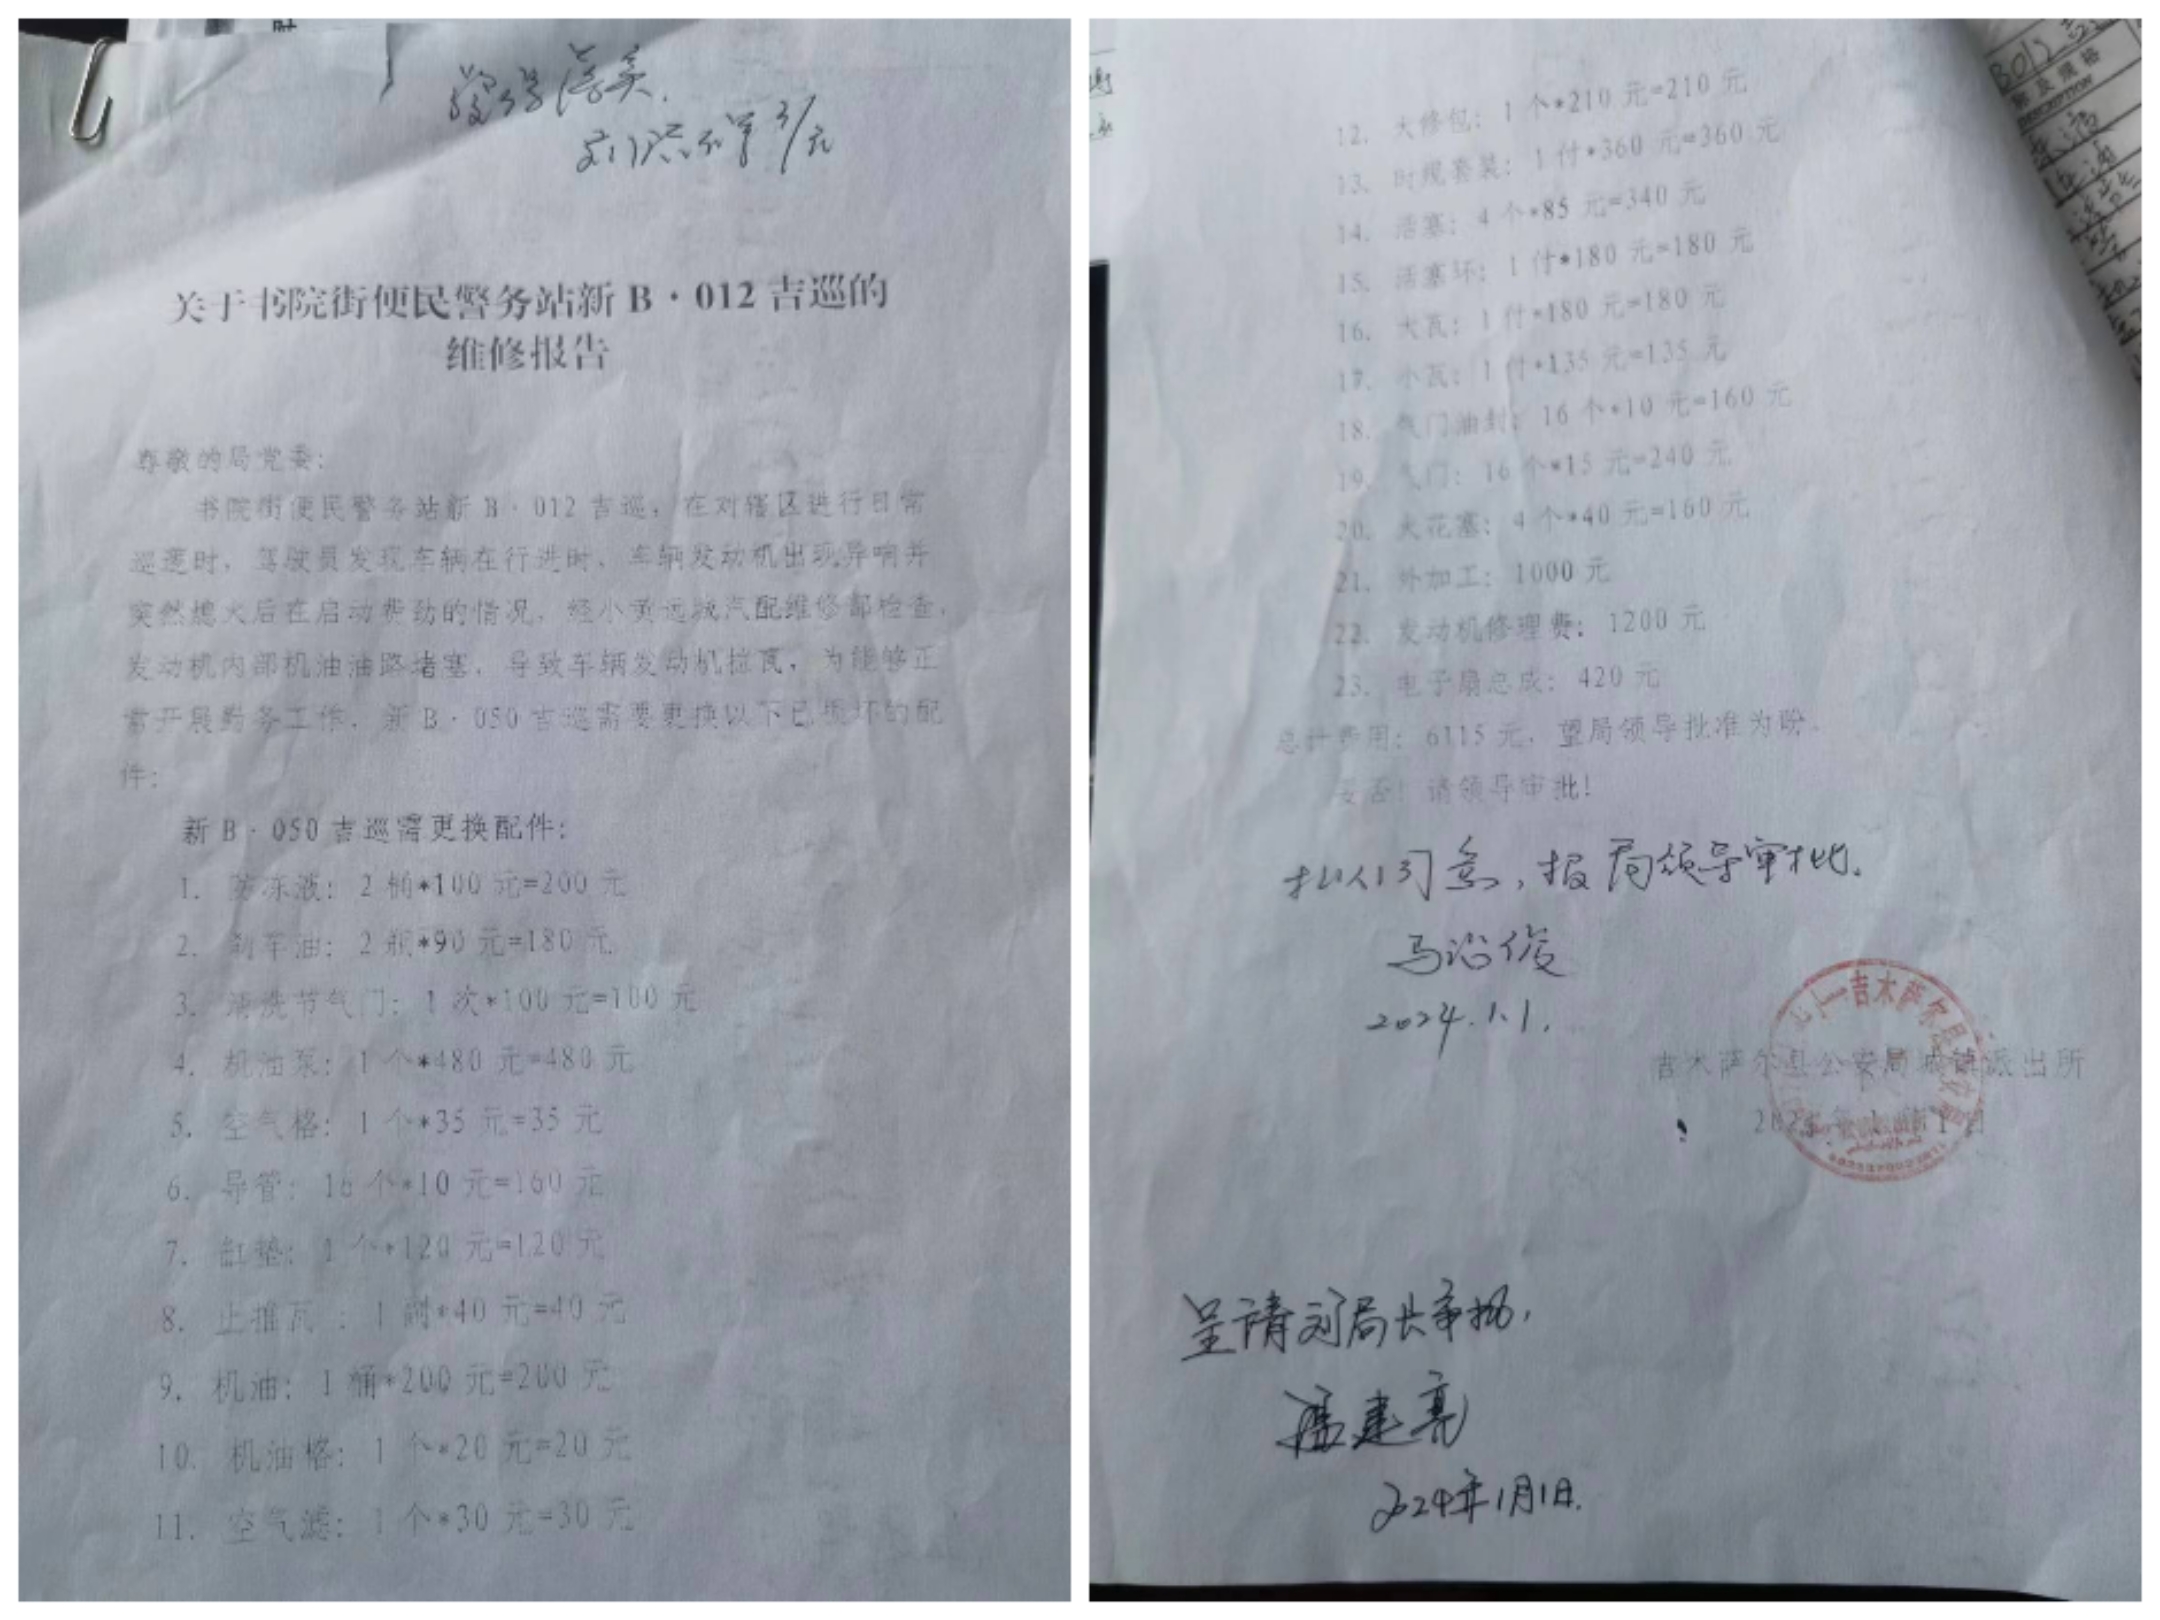 关于书院街便民警务站新 B·012 吉巡的
维修报告
尊敬的局党委:
书院街便民警务站新 B·012 吉巡,在对辖区进行日常
巡逻时,驾驶员发现车辆在行进时,车辆发动机出现异响并
突然熄火后在启动费劲的情况,经小黄远诚汽配维修部检查,
发动机内部机油油路堵塞,导致车辆发动机拉瓦,为能够正
常开展勤务工作,新 B·050 吉巡需要更换以下已损坏的配
件:
新 B·050 吉巡需更换配件:
1. 防冻液: 2 桶*100 元=200 元
2. 刹车油: 2 瓶*90 元=180 元
3. 清洗节气门: 1 次*100 元=100 元
4. 机油泵: 1 个*480 元=480 元
5. 空气格: 1 个*35 元=35 元
6. 导管: 16 个*10 元=160 元
7. 缸垫: 1 个*120 元=120 元
8. 止推瓦 : 1 副*40 元=40 元
9. 机油: 1 桶*200 元=200 元
10. 机油格: 1 个*20 元=20 元
11. 空气滤: 1 个*30 元=30 元
12. 大修包: 1 个*210 元=210 元
13. 时规套装: 1 付*360 元=360 元
14. 活塞: 4 个*85 元=340 元
15. 活塞环: 1 付*180 元=180 元
16. 大瓦: 1 付*180 元=180 元
17. 小瓦: 1 付*135 元=135 元
18. 气门油封: 16 个*10 元=160 元
19. 气门: 16 个*15 元=240 元
20. 火花塞: 4 个*40 元=160 元
21. 外加工: 1000 元
22. 发动机修理费: 1200 元
23. 电子扇总成: 420 元
总计费用: 6115 元,望局领导批准为盼。
妥否!请领导审批!
拟同意,报局领导审批.
2024.1.1.
吉木萨尔县公安局城镇派出所
呈请刘局长审批,
建亮
2024年1月1日.